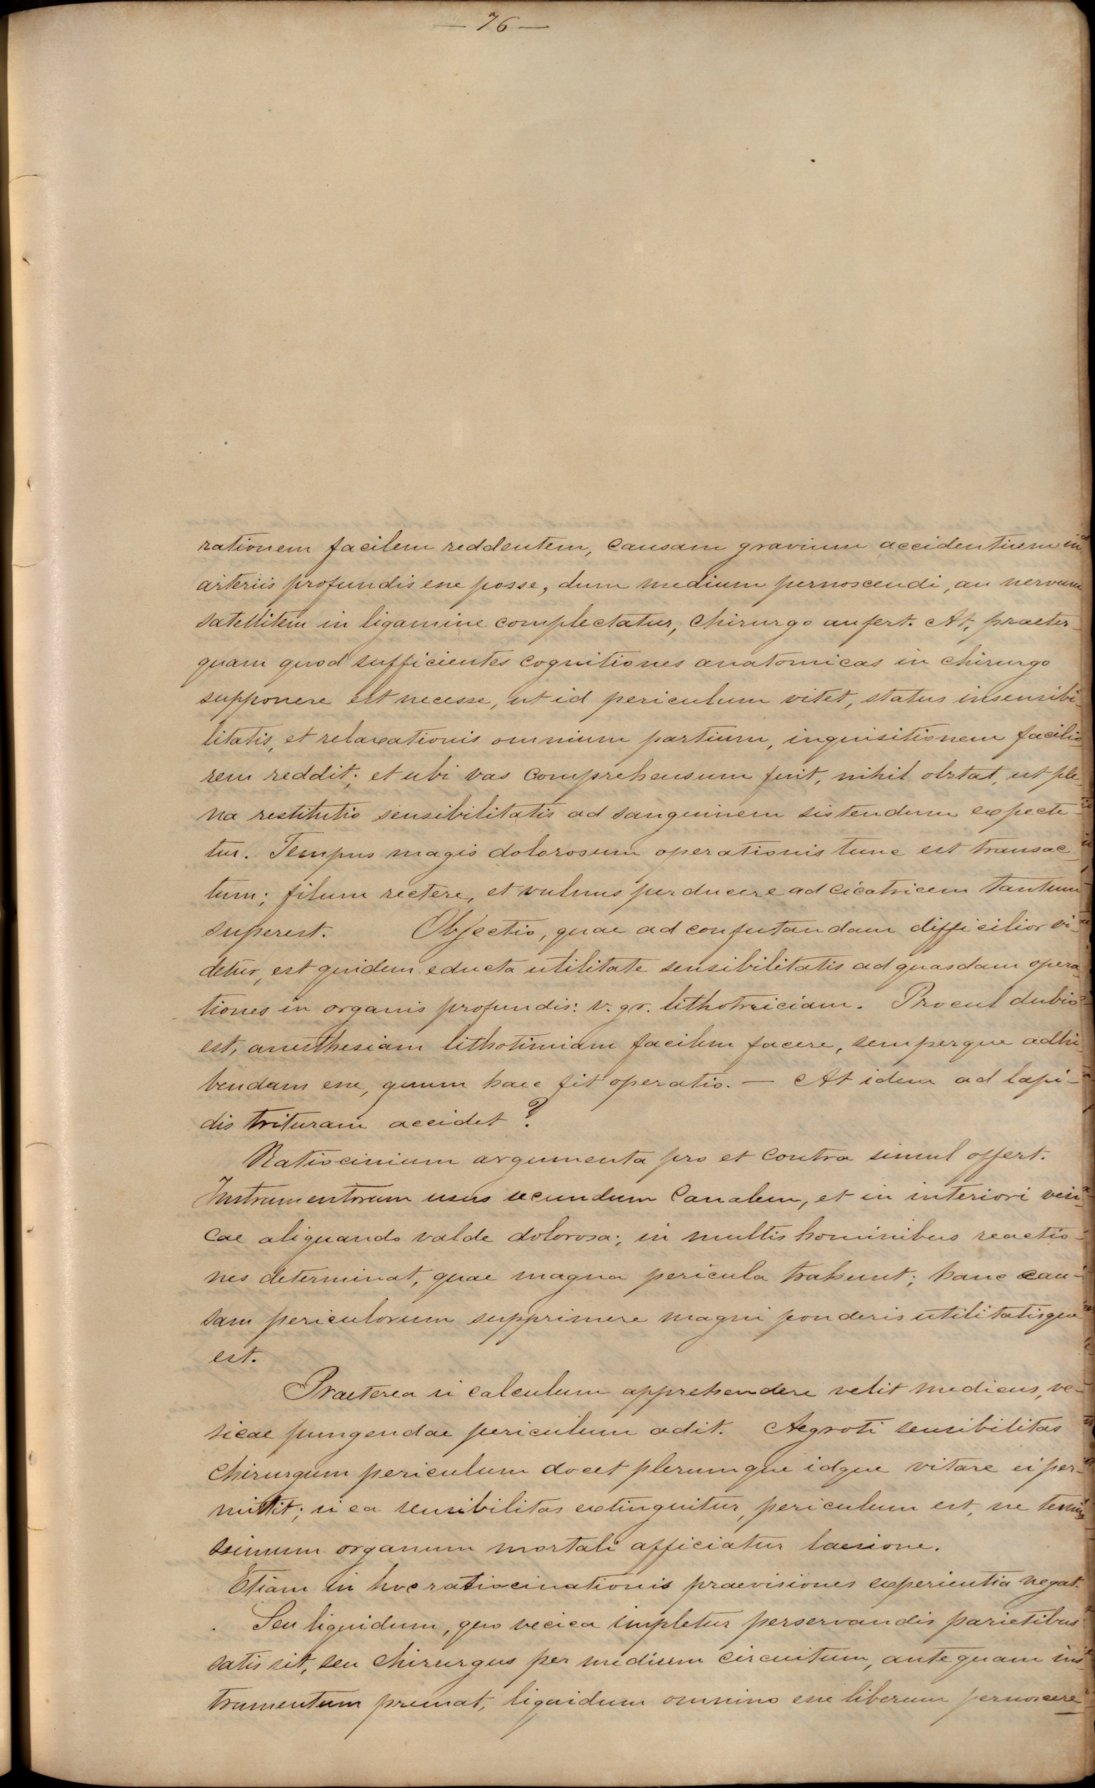 — 76 —
rationem facilem reddentem, causam gravium accidentium in
arteriis profundis esse posse, dum medium pernoscendi, an nervum
satellitem in ligamine complectatur, chirurgo aufert. At, praeter-
quam quod sufficientes cognitiones anatomicas in chirurgo
supponere est necesse, ut id periculum vitet, status insensibi-
litatis, et relaxationis omnium partium, inquisitionem facilio
rem reddit; et ubi vas comprehensum fuit, nihil obstat, ut ple-
na restitutio sensibilitatis ad sanguinem sistendum expecte-
tur. Tempus magis dolorosum operationis tunc est transac-
tum; filum nectere, et vulnus perducere ad cicatricem tantum
superest. Objectio, quae ad confutandam difficilior vi-
detur, est quidem educta utilitate sensibilitatis ad quasdam opera-
tiones in organis profundis: v. gr. lithotriciam. Procul dubio
est, anesthesiam lithotimiam facilem facere, semperque adhi-
bendam esse, quum haec fit operatio. — At idem ad lapi-
dis trituram accidet?
Ratiocinium argumenta pro et contra simul offert.
Instrumentorum usus secundum canalem, et in interiori vesi-
cae aliquando valde dolorosa; in multis hominibus reactio-
nes determinat, quae magna pericula trahunt; hanc cau-
sam periculorum supprimere magni ponderis utilitatisque
est.
Praeterea si calculum apprehendere velit medicus, ve-
sicae pungendae periculum adit. Aegroti sensibilitas
chirurgum periculum docet plerumque idque vitare ei per-
mittit; si ea sensibilitas extinguitur, periculum est, ne tenui
ssimum organum mortali afficiatur laesione.
Etiam in hoc ratiocinationis praevisiones experientia negat.
Seu liquidum, quo vecica impletur perservandis parietibus
satis sit, seu chirurgus per medium circuitum, antequam ins
trumentum premat, liquidum omnino esse liberum pernoscere